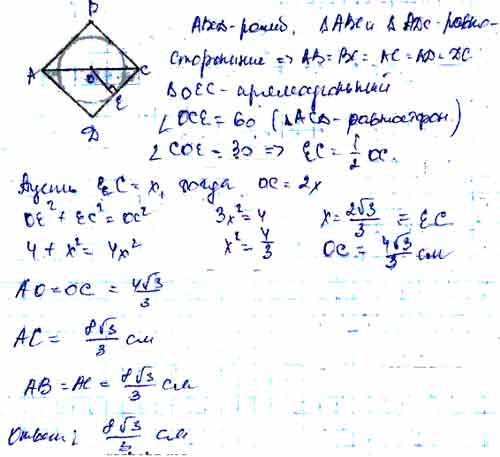 B
A
O
C
E
D
ABCD-ромб, ΔABC и ΔADC-равно-
сторонние => AB=BC=AC=AD=DC
ΔOEC-прямоугольный
∠OCE=60 (ΔACD-равностор.)
∠COE=30 => EC=1/2 OC.
Пусть EC=x, тогда OC=2x
OE²+EC²=OC² 3x²=4 x=2√3/3 =EC
4+x²=4x² x²=4/3 OC=4√3/3 см
AO=OC=4√3/3
AC=8√3/3 см
AB=AC=8√3/3 см
Ответ: 8√3/3 см.